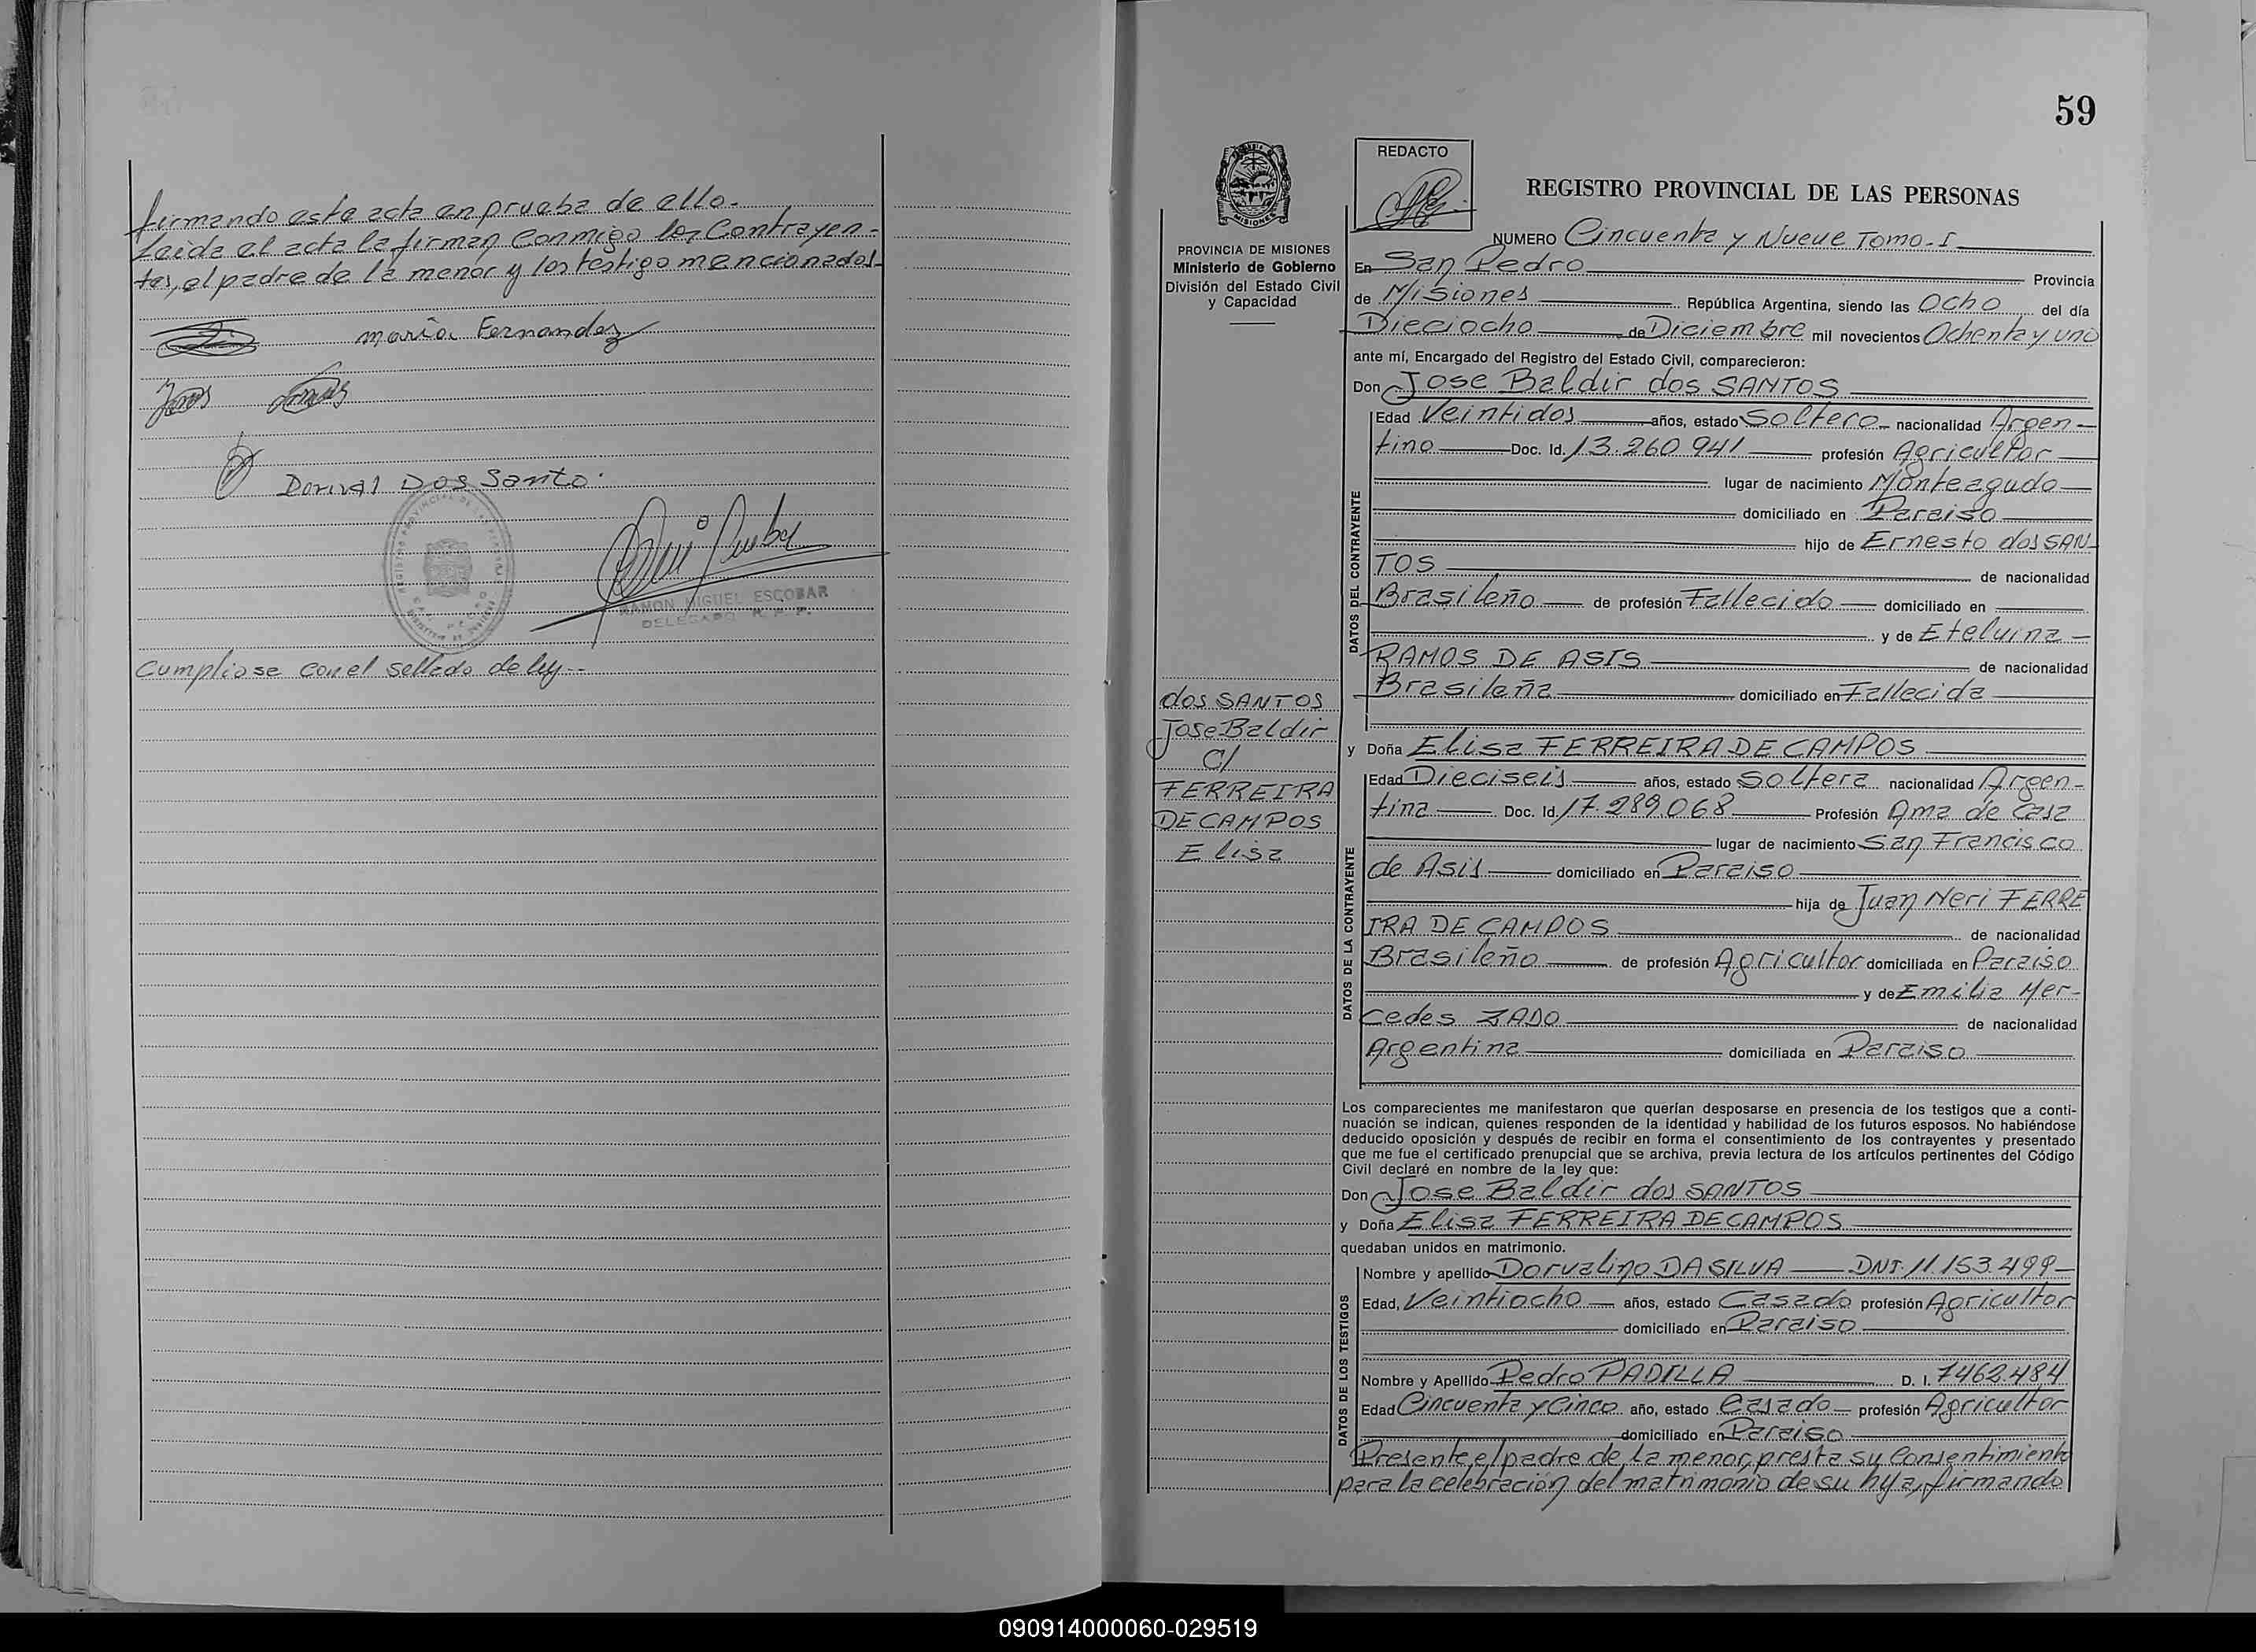 firmando esta acta en prueba de ello.
Leida el acta la firman conmigo los Contrayen-
tes, el padre de la menor y los testigo mencionados
maria Fernandez
Dorival Dos Santo.
RAMON MIGUEL ESCOBAR
DELEGADO R. P. P.
Cumpliose con el sellado de ley--
59
REDACTO
MISIONES
PROVINCIA DE MISIONES
Ministerio de Gobierno
División del Estado Civil
y Capacidad
REGISTRO PROVINCIAL DE LAS PERSONAS
NUMERO Cincuenta y Nueve Tomo-I
En San Pedro Provincia
de Misiones República Argentina, siendo las Ocho del día
Dieciocho de Diciembre mil novecientos Ochenta y uno
ante mí, Encargado del Registro del Estado Civil, comparecieron:
Don Jose Baldir dos SANTOS
Edad Veintidos años, estado Soltero nacionalidad Argen-
tino Doc. Id. 13.260.941 profesión Agricultor
lugar de nacimiento Monteagudo
domiciliado en Paraiso
hijo de Ernesto dos SAN
TOS de nacionalidad
Brasileño de profesión Fallecido domiciliado en
y de Etelvina
RAMOS DE ASIS de nacionalidad
Brasileña domiciliado en Fallecida
DATOS DEL CONTRAYENTE
dos SANTOS
Jose Baldir
C/
FERREIRA
DE CAMPOS
Elisa
y Doña Elisa FERREIRA DE CAMPOS
Edad Dieciseis años, estado Soltera nacionalidad Argen-
tina Doc. Id. 17.289.068 Profesión Ama de Casa
lugar de nacimiento San Francisco
de Asis domiciliado en Paraiso
hija de Juan Neri FERRE
IRA DE CAMPOS de nacionalidad
Brasileño de profesión Agricultor domiciliada en Paraiso
y de Emilia Mer-
cedes ZADO de nacionalidad
Argentina domiciliada en Paraiso
DATOS DE LA CONTRAYENTE
Los comparecientes me manifestaron que querían desposarse en presencia de los testigos que a conti-
nuación se indican, quienes responden de la identidad y habilidad de los futuros esposos. No habiéndose
deducido oposición y después de recibir en forma el consentimiento de los contrayentes y presentado
que me fue el certificado prenupcial que se archiva, previa lectura de los artículos pertinentes del Código
Civil declaré en nombre de la ley que:
Don Jose Baldir dos SANTOS
y Doña Elisa FERREIRA DE CAMPOS
quedaban unidos en matrimonio.
Nombre y apellido Dorvalino DA SILVA DNI. 11.153.499
Edad, Veintiocho años, estado Casado profesión Agricultor
domiciliado en Paraiso
Nombre y Apellido Pedro PADILLA D. I. 7462.484
Edad Cincuenta y Cinco año, estado Casado profesión Agricultor
domiciliado en Paraiso
DATOS DE LOS TESTIGOS
Presente el padre de la menor, presta su Consentimiento
para la celebración del matrimonio de su hija, firmando
090914000060-029519